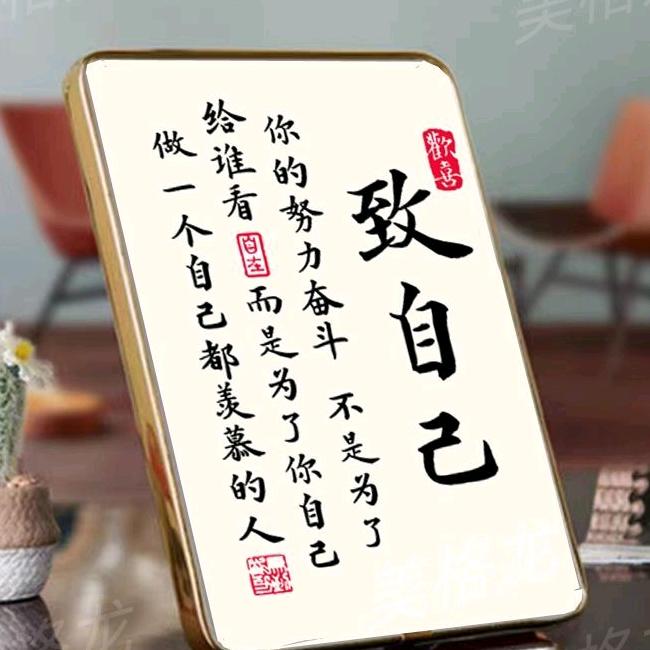 致自己
歡喜
你的努力奋斗 不是为了
给谁看 自在 而是为了你自己
做一个自己都羡慕的人
美格龙